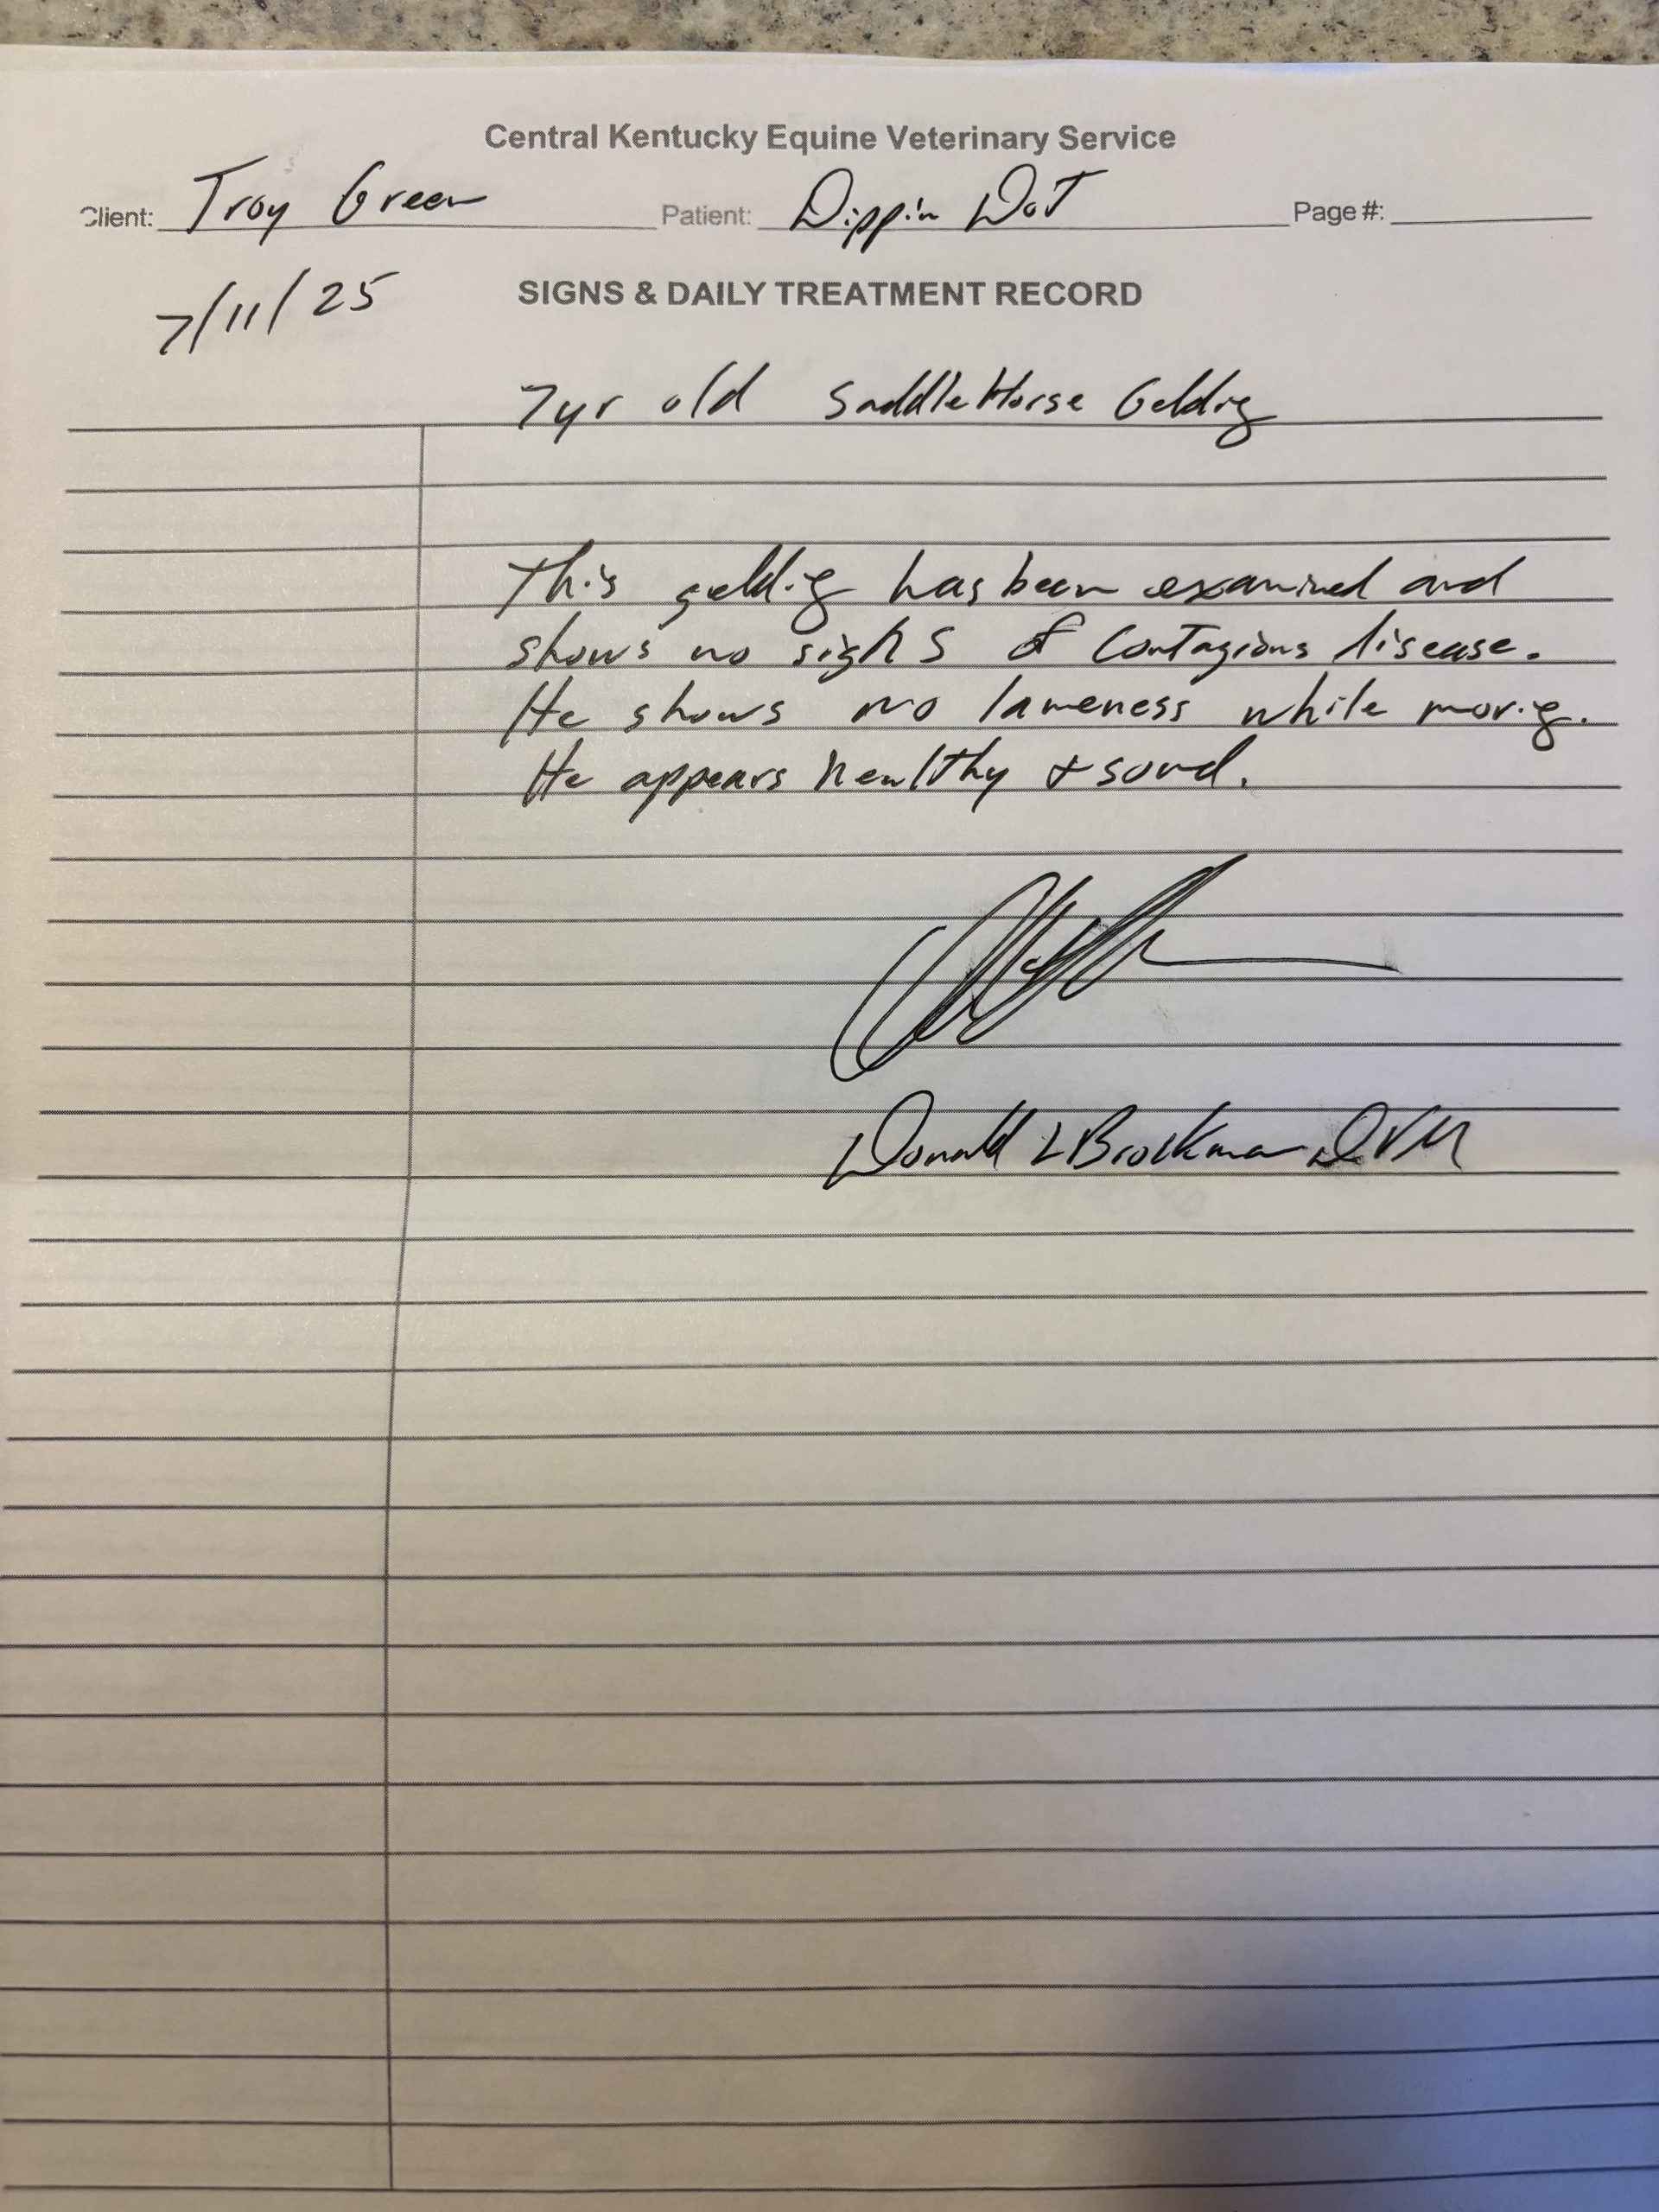 Central Kentucky Equine Veterinary Service
Client: Troy Green Patient: Dippin Dot Page #:
7/11/25
SIGNS & DAILY TREATMENT RECORD
7yr old SaddleHorse Gelding
This gelding has been examined and
shows no signs of contagious disease.
He shows no lameness while moving.
He appears healthy + sound.
Donald L Brockman DVM